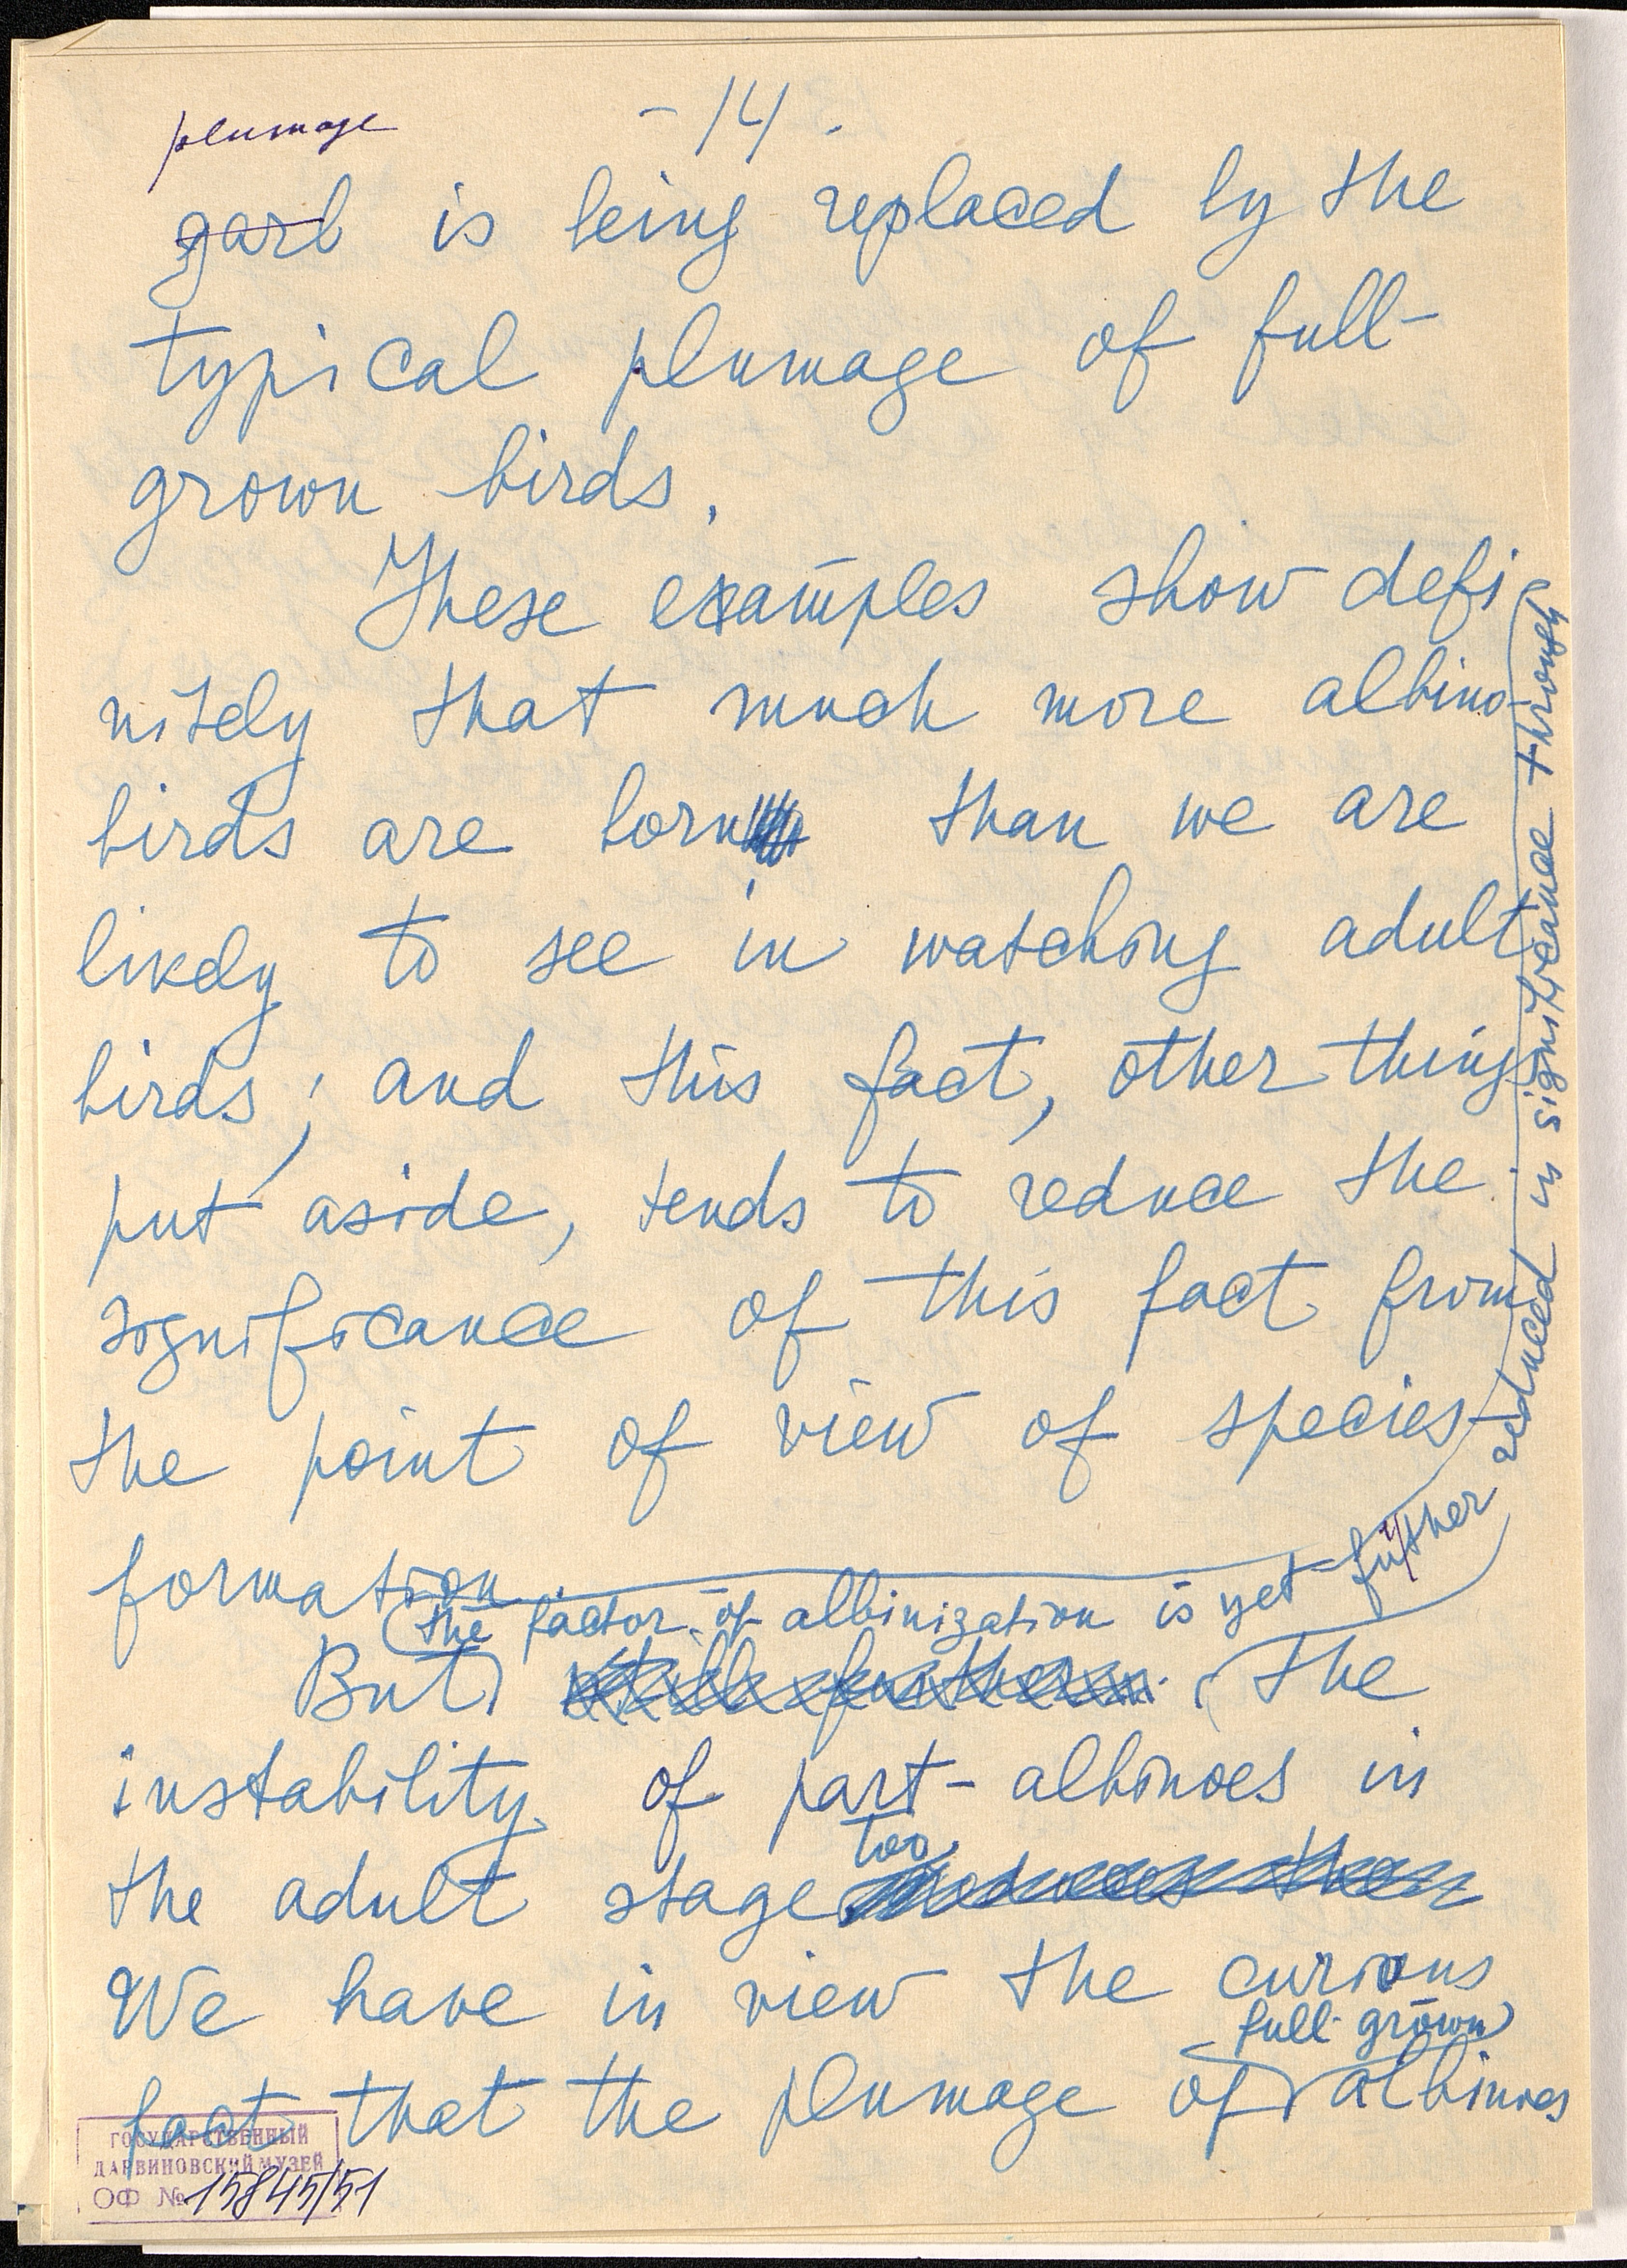 - 14 .
plumage
garb is being replaced by the
typical plumage of full-
grown birds.
These examples show defi
nitely that much more albino-
birds are born than we are
likely to see in watching adult
birds; and this fact, other things
put aside, tends to reduce the
significance of this fact from
the point of view of species-
formation.
the factor of albinization is yet further reduced in significance through
But still further the
instability of part-albinoes in
too
the adult stage
We have in view the curious
full-grown
fact that the plumage of albinoes
ГОСУДАРСТВЕННЫЙ
ДАРВИНОВСКИЙ МУЗЕЙ
ОФ № 15845/51